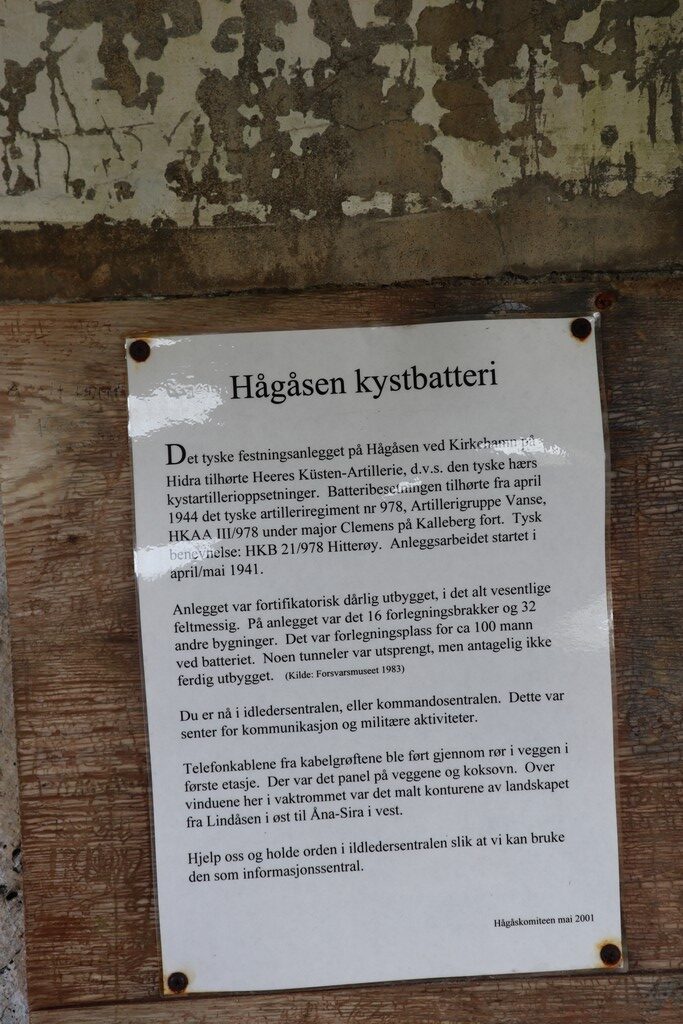 Hågåsen kystbatteri
Det tyske festningsanlegget på Hågåsen ved Kirkehamn på
Hidra tilhørte Heeres Küsten-Artillerie, d.v.s. den tyske hærs
kystartillerioppsetninger. Batteribesetningen tilhørte fra april
1944 det tyske artilleriregiment nr 978, Artillerigruppe Vanse,
HKAA III/978 under major Clemens på Kalleberg fort. Tysk
benevnelse: HKB 21/978 Hitterøy. Anleggsarbeidet startet i
april/mai 1941.
Anlegget var fortifikatorisk dårlig utbygget, i det alt vesentlige
feltmessig. På anlegget var det 16 forlegningsbrakker og 32
andre bygninger. Det var forlegningsplass for ca 100 mann
ved batteriet. Noen tunneler var utsprengt, men antagelig ikke
ferdig utbygget. (Kilde: Forsvarsmuseet 1983)
Du er nå i idledersentralen, eller kommandosentralen. Dette var
senter for kommunikasjon og militære aktiviteter.
Telefonkablene fra kabelgrøftene ble ført gjennom rør i veggen i
første etasje. Der var det panel på veggene og koksovn. Over
vinduene her i vaktrommet var det malt konturene av landskapet
fra Lindåsen i øst til Åna-Sira i vest.
Hjelp oss og holde orden i ildledersentralen slik at vi kan bruke
den som informasjonssentral.
Hågåskomiteen mai 2001